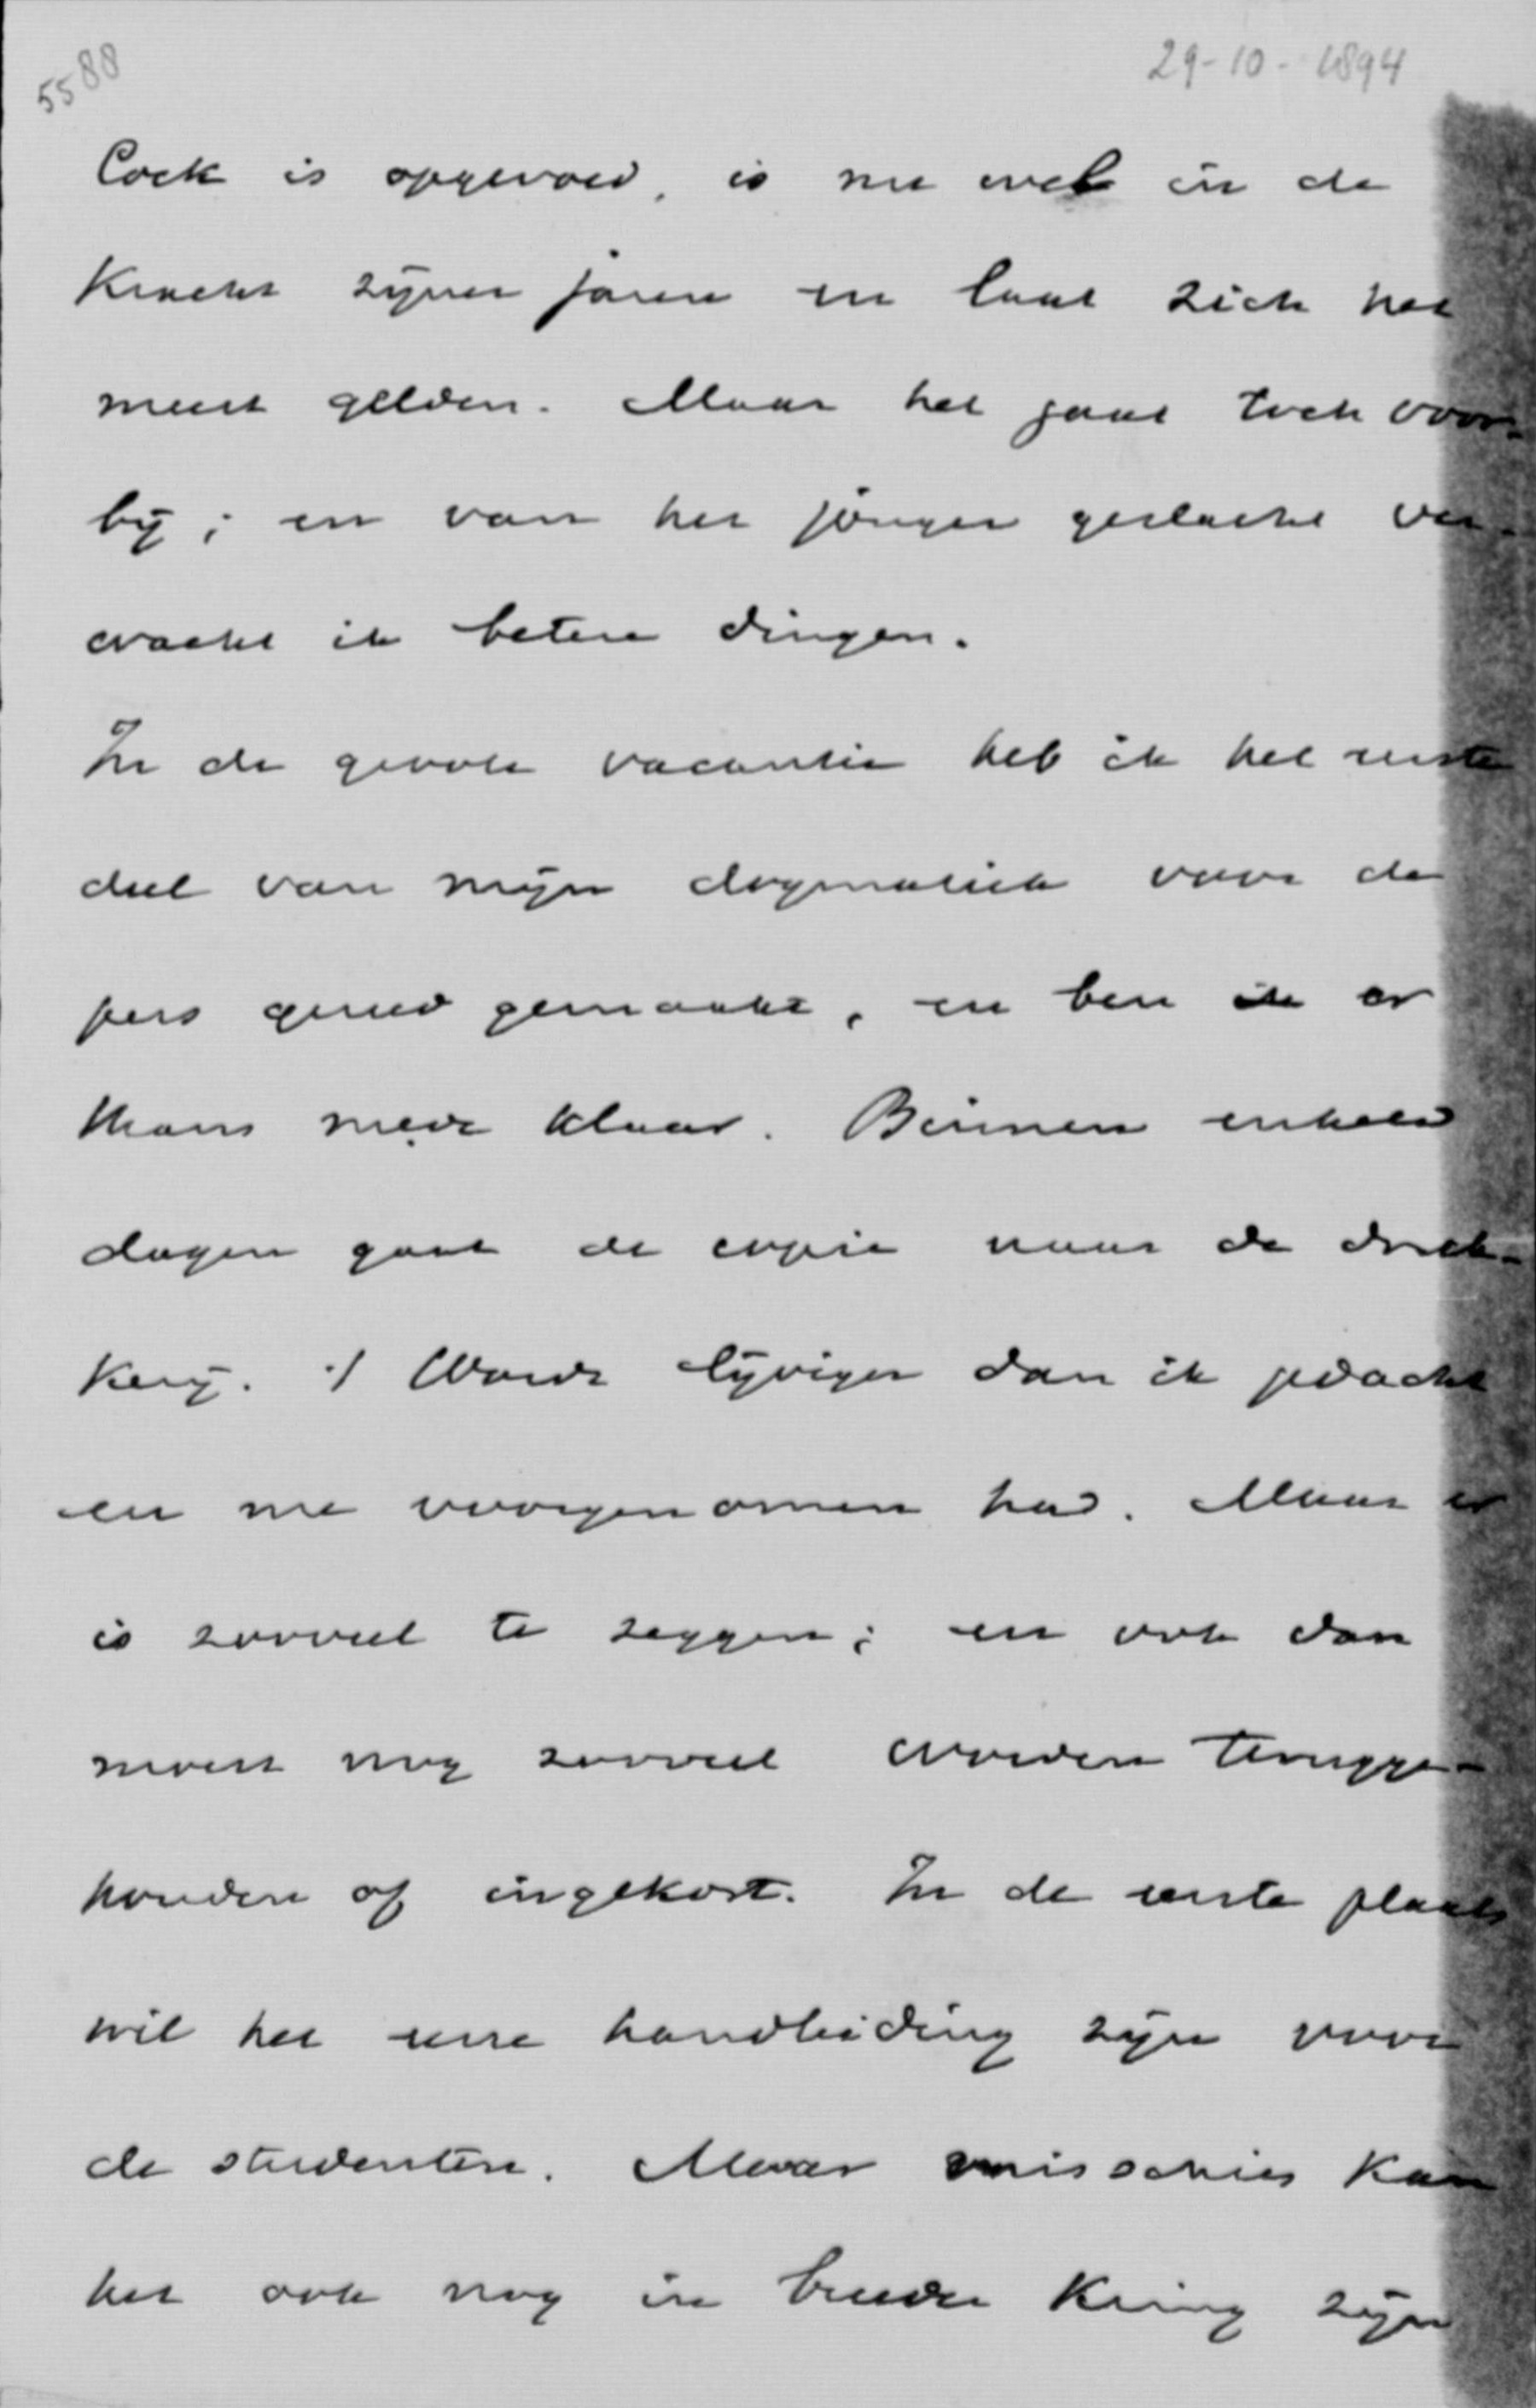 5588
29-10-1894
Cock is opgevoed, is nu wel in de
kracht zijner jaren en laat zich het
meest gelden. Maar het gaat toch voor-
bij; en van het jonger geslacht ver-
wacht ik betere dingen.
In de groote vacantie heb ik het eerste
deel van mijn dogmatiek voor de
pers gereed gemaakt, en ben ik er
thans mede klaar. Binnen enkele
dagen gaat de copie naar de druk-
kerij. 't Wordt lijviger dan ik gedacht
en me voorgenomen had. Maar er
is zooveel te zeggen; en ook dan
moest nog zooveel worden terugge-
houden of ingekort. In de eerste plaats
wil het eene handleiding zijn voor
de studenten. Maar misschien kan
het ook nog in breeder kring zijn